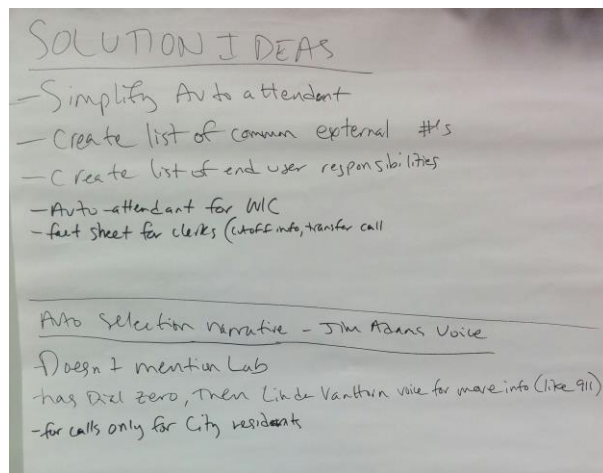 SOLUTION IDEAS
- Simplify Auto attendant
- Create list of common external #'s
- Create list of end user responsibilities
- Auto-attendant for WIC
- fact sheet for clerks (cutoff info, transfer call
Auto Selection narrative - Jim Adams Voice
Doesn't mention Lab
has Dial zero, Then Linda voice for more info (like 911)
- for calls only for City residents